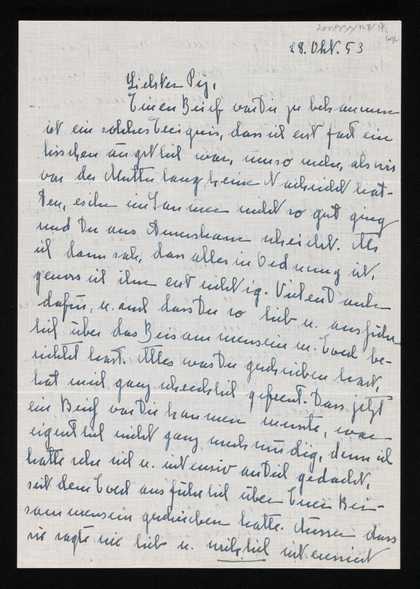 28. Okt. 53
Liebster Pig,
Einen Brief von Dir zu bekommen
ist ein solches Ereignis, dass ich erst fast ein
bisschen ängstlich war, umso mehr, als wir
von der Mutter lang keine Nachricht hat-
ten, es ihr im Sommer nicht so gut ging
und Du aus schreibst. Als
ich dann sah, dass alles in Ordnung ist,
genoss ich ihn erst richtig. Vielen Dank
dafür, u. auch dass Du so lieb u. ausführ-
lich über das Beisammensein m. be-
richtet hast. Alles was Du geschrieben hast,
hat mich ganz schrecklich gefreut. Dass jetzt
ein Brief von Dir kommen musste, war
eigentlich nicht ganz merkwürdig, denn ich
hatte sehr viel u. intensiv an Dich gedacht,
seit ausführlich über Euer Bei-
sammensein geschrieben hatte. Ausser dass
sie sagte wie lieb u. wirklich interessiert